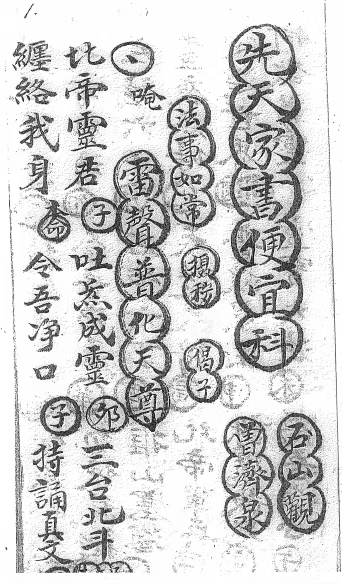 1.
先天家書便宜科
石山觀
曾濟泉
法事如常
偈子
雷聲普化天尊
唵
北帝靈君 子 吐炁成靈 三台北斗
纏絡我身 令吾净口 子 持誦真文